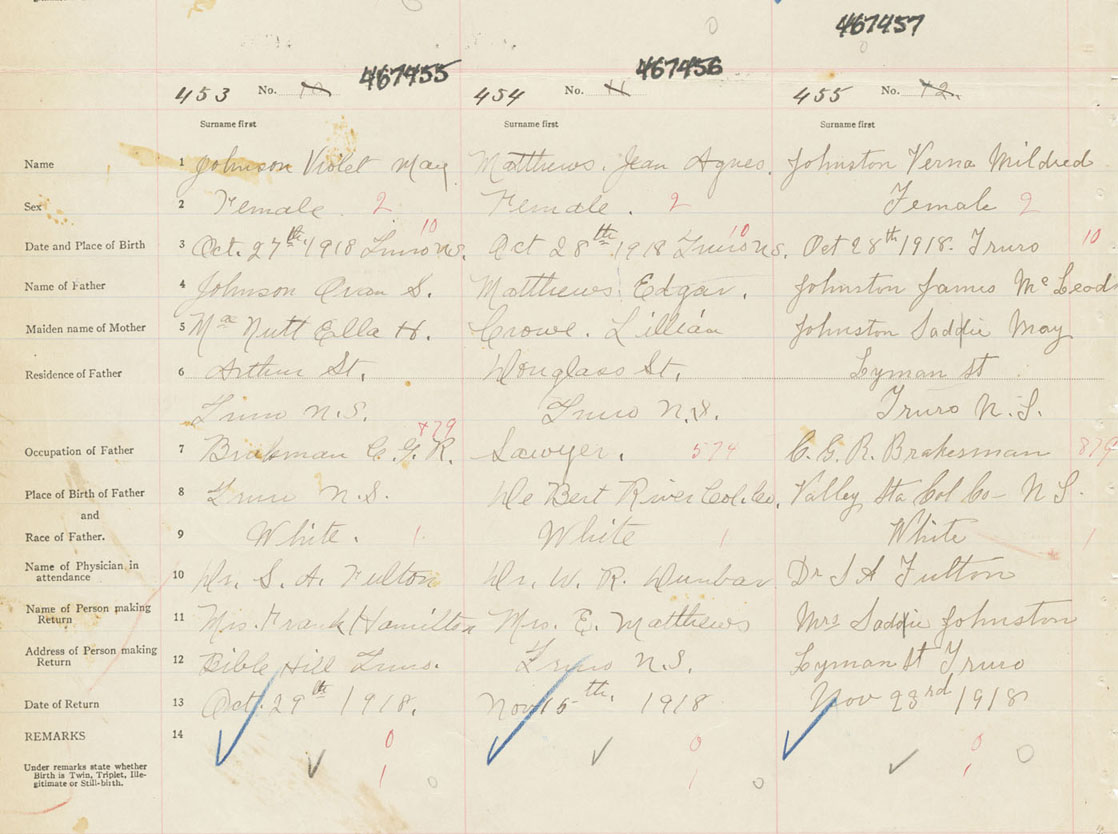 467457
467455
467456
453 No. 10
454 No. 11
455 No. 12
Surname first Surname first Surname first
Name 1 Johnson Violet May Matthews. Jean Agnes. Johnston Verna Mildred
Sex 2 Female 2 Female. 2 Female 2
10 10
Date and Place of Birth 3 Oct. 27th 1918 Truro N.S. Oct 28th 1918 Truro N.S. Oct 28th 1918. Truro 10
Name of Father 4 Johnson S. Matthews Edgar. Johnston James McLeod
Maiden name of Mother 5 MacNutt Ella H. Crowe. Lillian Johnston Saddie May
Residence of Father 6 Arthur St. Douglass St. Lyman St
Truro N.S. Truro N.S. Truro N.S.
Occupation of Father 7 Brakman C.G.R. Sawyer. 574 C.G.R. Brakesman
Place of Birth of Father 8 Truro N.S. De Bert River Col. Co. Valley Sta Col Co- N S.
and
Race of Father. 9 White. 1 White 1 White 1
Name of Physician in attendance 10 Dr. S. A. Fulton Dr. W. R. Dunbar Dr S A Fulton
Name of Person making Return 11 Mrs. Frank Hamilton Mrs. E. Matthews Mrs Saddie Johnston
Address of Person making Return 12 Bible Hill Truro. Truro N.S. Lyman St Truro
Date of Return 13 Oct. 29th 1918. Nov 15th. 1918 Nov 23rd 1918
REMARKS 14 0 0 0
Under remarks state whether
Birth is Twin, Triplet, Ille-
gitimate or Still-birth.
1 0 1 0 1 0